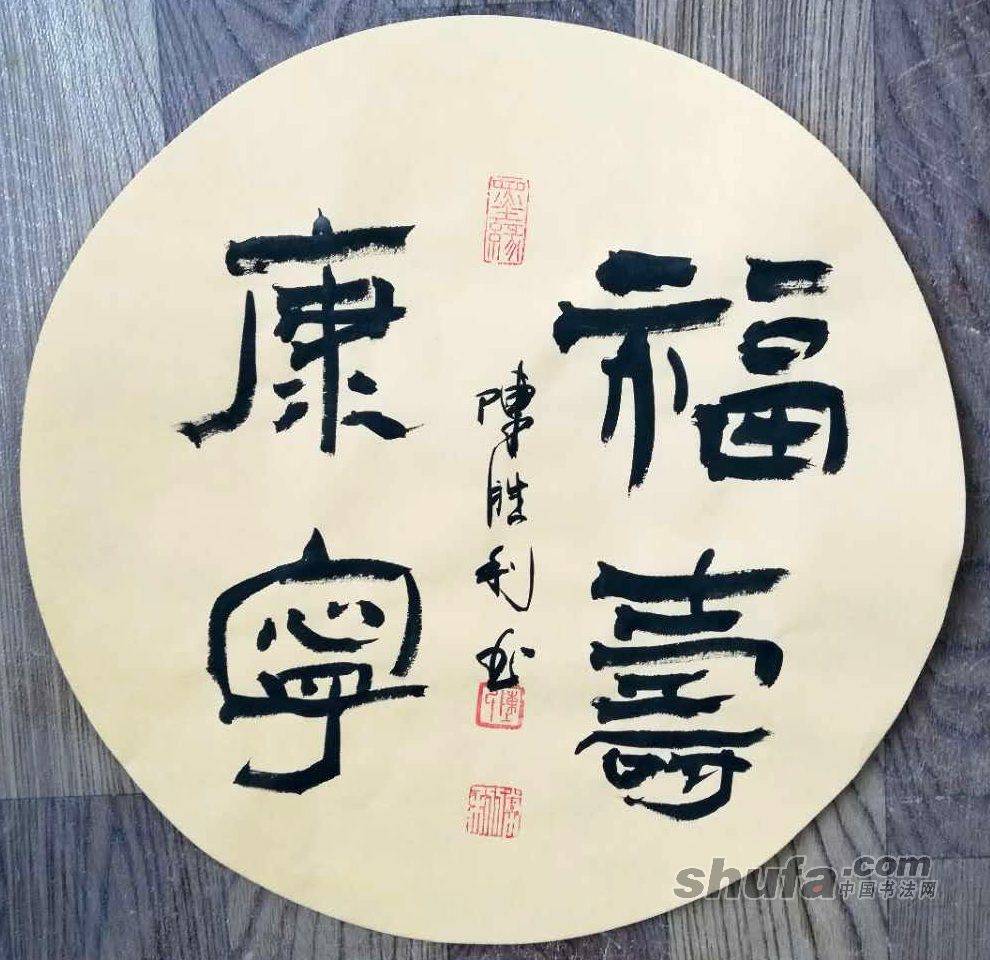 福壽
康寧
陳勝利書
墨緣
shufa.com
中国书法网